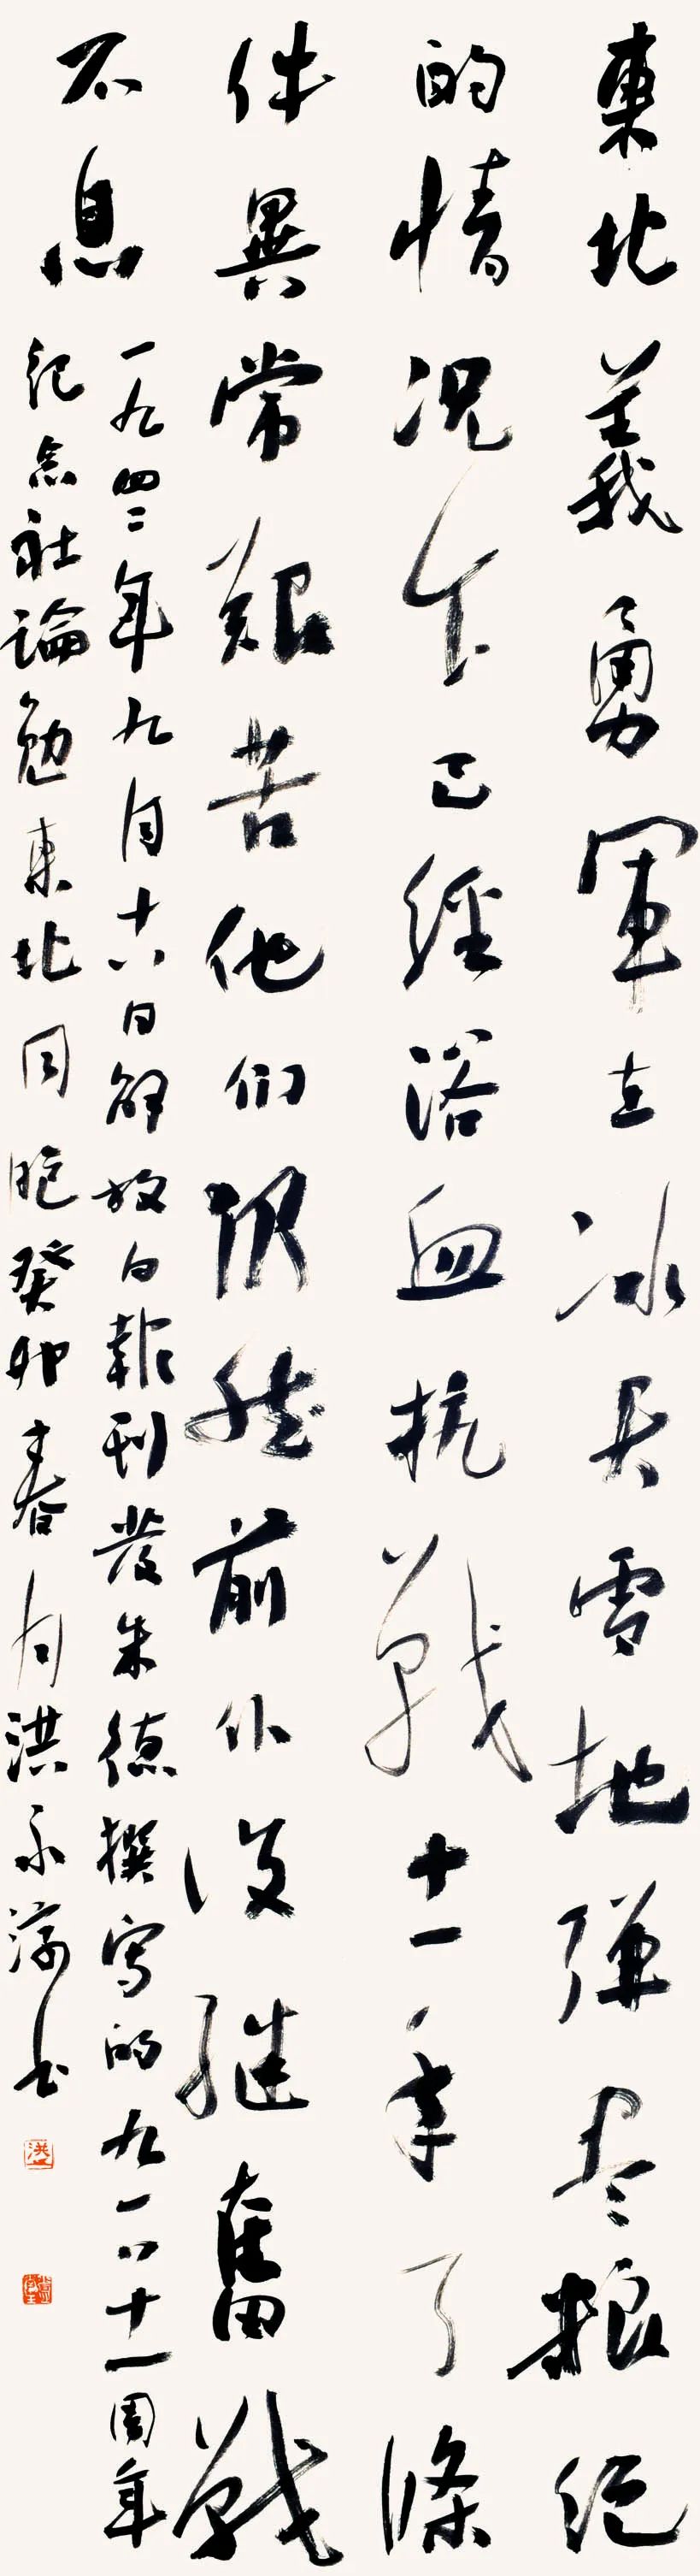 東北義勇軍在冰天雪地彈尽粮绝
的情况下已經浴血抗戰十一年了條
件異常艱苦他们仍然前仆後継奮戰
不息
一九四二年九月十六日解放日報刊發朱德撰写的九一八十一周年
紀念社論勉東北同胞癸卯春月洪永滂书